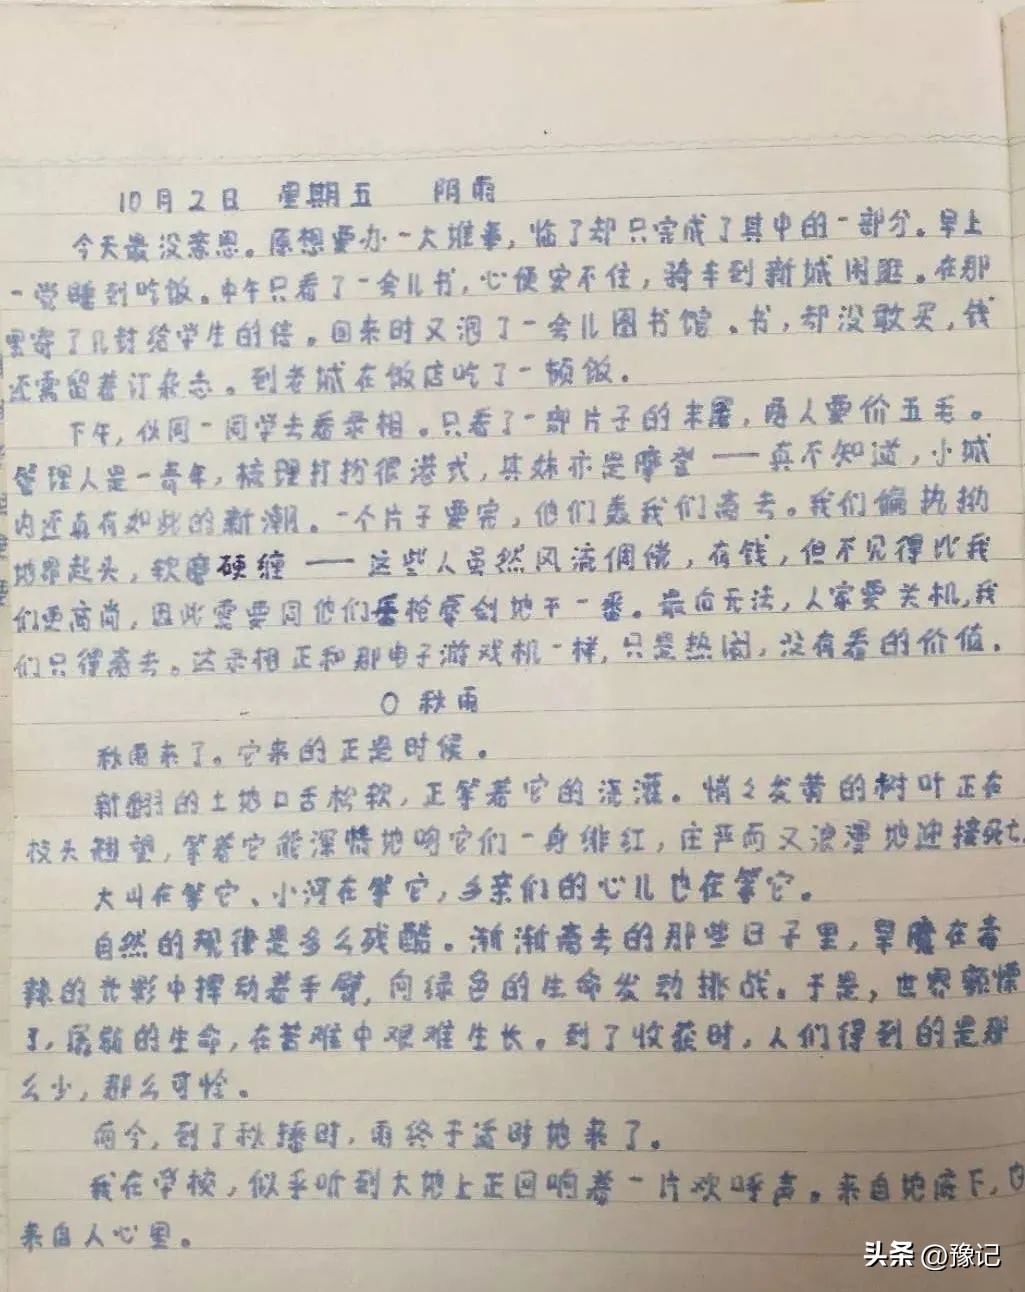 10月2日 星期五 阴雨
今天最没意思。原想要办一大堆事，临了却只完成了其中的一部分。早上
一觉睡到吃饭。中午只看了一会儿书，心便安不住，骑车到新城闲逛。在那
里寄了几封给学生的信。回来时又泡了一会儿图书馆。书，却没敢买，钱
还需留着订杂志。到老城在饭店吃了一顿饭。
下午，伙同一同学去看录相。只看了一部片子的末尾，两人要价五毛。
管理人是一青年，梳理打扮很港式，其妹亦是摩登——真不知道，小城
内还真有如此的新潮。一个片子要完，他们轰我们离去。我们偏执拗
地昂起头，软磨硬缠——这些人虽然风流倜傥，有钱，但不见得比我
们更高尚，因此需要同他们唇枪舌剑地干一番。最后无法，人家要关机，我
们只得离去。这录相正和那电子游戏机一样，只是热闹，没有看的价值。
○ 秋雨
秋雨来了。它来的正是时候。
新翻的土地口舌松软，正等着它的浇灌。悄々发黄的树叶正在
枝头翘望，等着它能深情地吻它们一身绯红，庄严而又浪漫地迎接死亡
大山在等它、小河在等它，乡亲们的心儿也在等它。
自然的规律是多么残酷。渐渐离去的那些日子里，旱魔在毒
辣的光影中挥动着手臂，向绿色的生命发动挑战。于是，世界颤慄
了，孱弱的生命，在苦难中艰难生长。到了收获时，人们得到的是那
么少，那么可怜。
而今，到了秋播时，雨终于适时地来了。
我在学校，似乎听到大地上正回响着一片欢呼声。来自地底下，也
来自人心里。
头条 @豫记